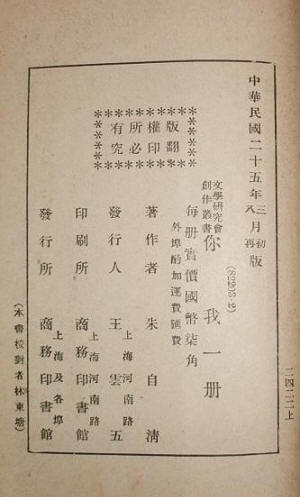 中華民國二十五年三月初版
八月再版
(58229·2)
文學研究會
創作叢書
你我一册
每册實價國幣柒角
外埠酌加運費匯費
版權所有
翻印必究
著作者 朱自清
發行人 王雲五
上海河南路
印刷所 商務印書館
上海河南路
發行所 商務印書館
上海及各埠
(本書校對者林東塘)
二四二二上